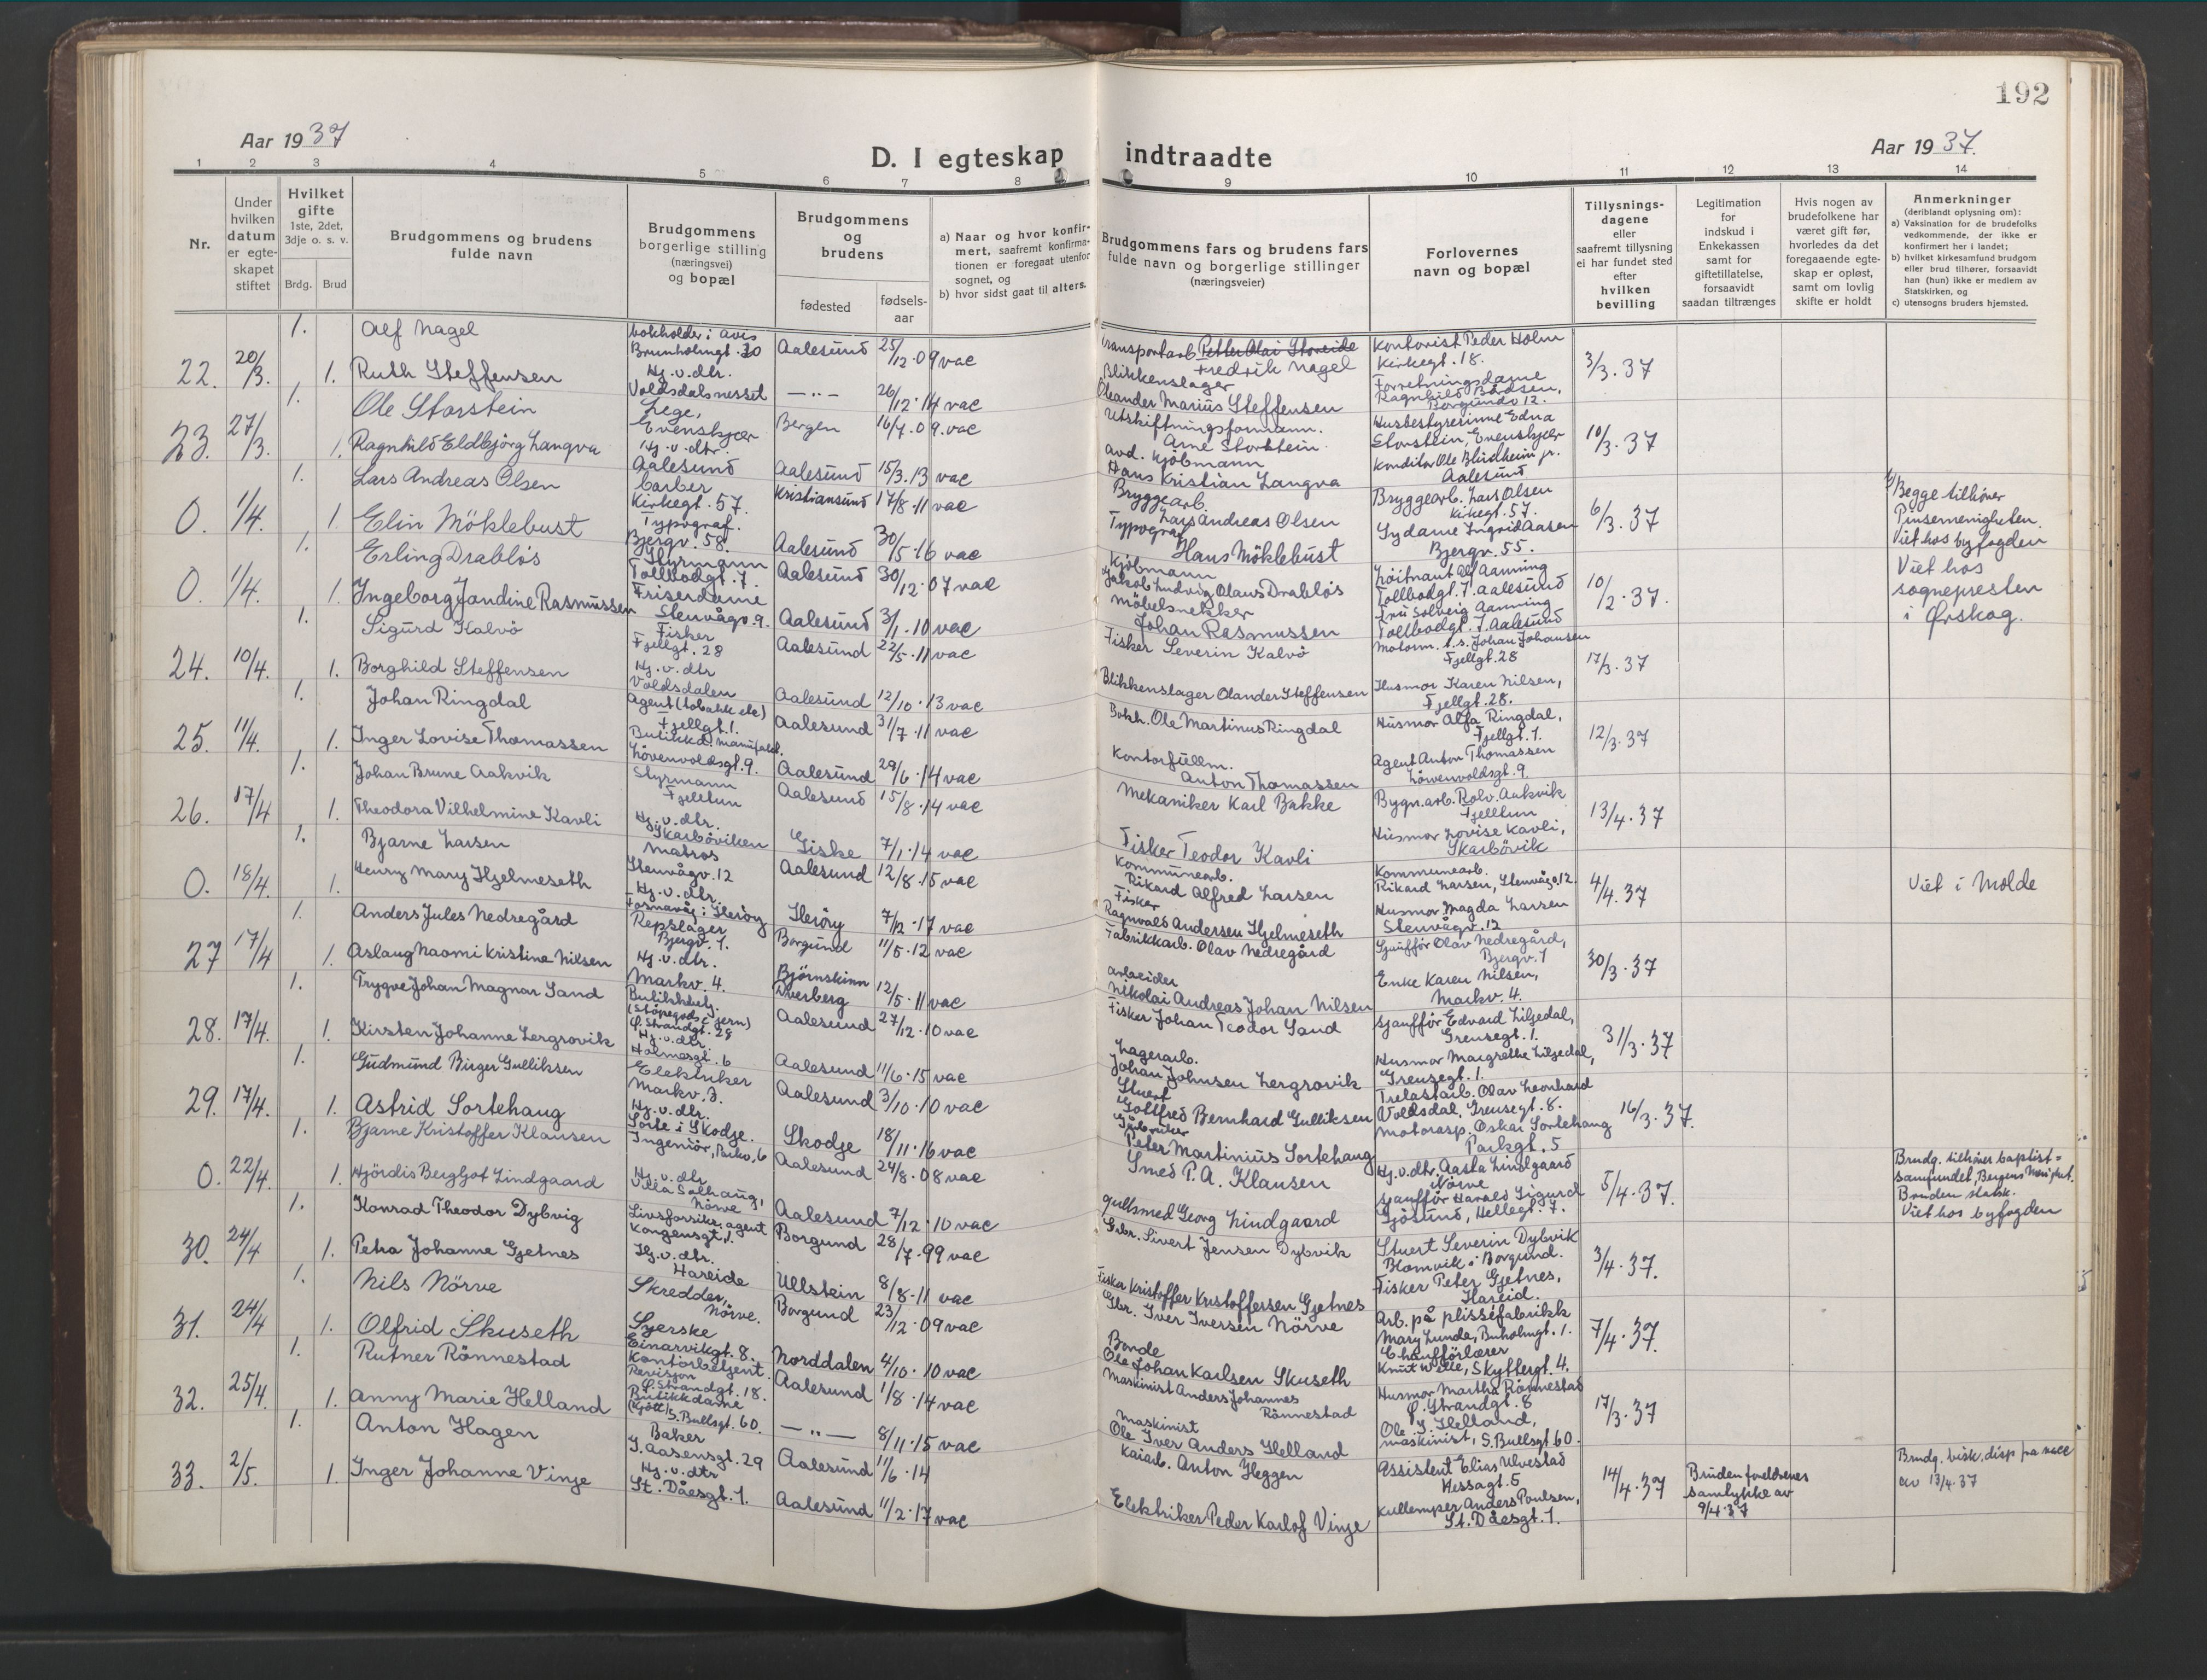 192
Aar 1937
D. I egteskap indtraadte
Aar 1937.
1 2 3 4 5 6 7 8 9 10 11 12 13 14
Nr.
Under hvilken datum er egte-skapet stiftet
Hvilket gifte
1ste, 2det, 3dje o. s. v.
Brdg. Brud
Brudgommens og brudens fulde navn
Brudgommens borgerlige stilling (næringsvei) og bopæl
Brudgommens og brudens
fødested
fødsels-aar
a) Naar og hvor konfir-mert, saafremt konfirma-tionen er foregaat utenfor sognet, og
b) hvor sidst gaat til alters.
Brudgommens fars og brudens fars fulde navn og borgerlige stillinger (næringsveier)
Forlovernes navn og bopæl
Tillysnings-dagene eller saafremt tillysning ei har fundet sted efter hvilken bevilling
Legitimation for indskud i Enkekassen samt for giftetillatelse, forsaavidt saadan tiltrænges
Hvis nogen av brudefolkene har været gift før, hvorledes da det foregaaende egte-skap er opløst, samt om lovlig skifte er holdt
Anmerkninger
(deriblandt oplysning om):
a) Vaksination for de brudefolks vedkommende, der ikke er konfirmert her i landet;
b) hvilket kirkesamfund brudgom eller brud tilhører, forsaavidt han (hun) ikke er medlem av Statskirken, og
c) utensogns bruders hjemsted.
22. 20/3.
1. Alf Nagel
bokholder i Avis
Brunholmgt. 30
Aalesund 25/12.09 vac
Transportarb. Petter Olai Storeide
Fredrik Nagel
Kontorist Peder Holm
Kirkegt. 18.
3/3.37
1. Ruth Steffensen
Hj.v.dtr.
Voldsdalsnesset
—"— 26/12.14 vac
Blikkenslager
Oleander Marius Steffensen
Forretningsdame
Ragnhild Bårdsen,
Borgundv 12.
23. 27/3.
1. Ole Storstein
Lege,
Evenskjer
Bergen 16/7.09. vac
Utskiftningsformann.
Arne Storstein
Husbestyrerinne Edna
Storstein, Evenskjer
10/3.37
1. Ragnhild Eldbjørg Langva
Hj.v.dtr.
Aalesund
Aalesund 15/3.13 vac
avd. kjöbmann
Hans Kristian Langva
Konditor Ole Blindheim jr.
Aalesund
0. 1/4.
1. Lars Andreas Olsen
barber
Kirkegt. 57.
Kristiansund 17/8.11 vac
Bryggearb.
Lars Andreas Olsen
Bryggearb. Lars Olsen
kirkegt. 57.
6/3.37
Begge tilhörer
Pinsemenigheten.
Viet hos byfogden
1 Elin Möklebust
Typograf.
Bjergv. 58.
Aalesund 30/5.16 vac
Typograf
Hans Möklebust
Sydame Ingrid Aasen
Bjergv. 55.
0. 1/4.
1. Erling Drabløs
Styrmann
Tollbodgt. 7.
Aalesund 30/12.07 vac
Kjöbmann
Jakob Ludvig Olaus Drabløs
Löitnant Alf Aanning
Tollbodgt. 7. Aalesund
10/2.37.
Viet hos
sogneprestenn
i Ørskog.
1. Ingeborg Jandine Rasmussen
Friserdame
Stenvågv. 9.
Aalesund 3/1.10 vac
Möbelsnekker
Johan Rasmussen
Fru Solveig Aanning
Tollbodgt. 7. Aalesund
24. 10/4.
1. Sigurd Kalvø
Fisker
Fjellgt. 28
Aalesund 22/5.11 vac
Fisker Severin Kalvø
Motorm. t.s. Johan Johansen
Fjellgt. 28
17/3.37
1. Borghild Steffensen
Hj.v.dtr
Voldsdalen
Aalesund 12/10.13 vac
Blikkenslager Olander Steffensen
Husmor Karen Nilsen,
Fjellgt. 28.
25. 11/4.
1. Johan Ringdal
Agent (tobakk etc)
Fjellgt. 1.
Aalesund 31/7.11 vac
Bokh. Ole Martinus Ringdal
Husmor Alfa Ringdal,
Fjellgt. 1.
12/3.37
1. Inger Lovise Thomassen
Butikkd. manufakt.
Lövenvoldsgt. 9.
Aalesund 29/6.14 vac
Kontorfullm.
Anton Thomassen
Agent Anton Thomassen
Löwenvoldsgt. 9.
26. 17/4
1. Johan Brune Aakvik
Styrmann
Fjelltun
Aalesund 15/8.14 vac
Mekaniker Karl Bakke
Bygn.arb. Rolv. Aakvik
Fjelltun
13/4.37
1. Theodora Vilhelmine Kavli
Hj.v.dtr.
Skarbövikken
Giske 7/1.14 vac
Fisker Teodor Kavli
Husmor Lovise Kavli,
Skarbövik
0. 18/4.
1. Bjarne Larsen
Matros
Stenvågv. 12
Aalesund 12/8.15 vac
Kommunearb.
Rikard Alfred Larsen
Kommunearb.
Rikard Larsen, Stenvågv. 12.
4/4.37
Viet i Molde
1. Henny Mary Hjelmeseth
Hj.v.dtr.
Fosnavåg i Heröy
Heröy 7/12.17 vac
Fisker
Ragnvald Andersen Hjelmeseth
Husmor Magda Larsen
Stenvågv. 12
27 17/4
1. Anders Jules Nedregård
Repslager
Bjergv. 1.
Borgund 11/5.12 vac
Fabrikkarb. Olav Nedregård
Sjauffør Olav Nedregård,
Bjergv. 1
30/3.37
1. Aslaug Naomi Kristine Nilsen
Hj.v.dtr.
Markv. 4.
Björnskinn
Dverberg 12/5.11 vac
Arbeider
Nikolai Andreas Johan Nilsen
Enke Karen Nilsen,
Markv. 4.
28. 17/4.
1. Trygve Johan Magnar Sand
Butikkbetj.
(Stöpegods & jern)
S. Strandgt. 28
Aalesund 27/12.10 vac
Fisker Johan Teodor Sand
Sjauffør Edvard Liljedal,
Grensegt. 1.
31/3.37
1. Kirsten Johanne Lergrovik
Hj.v.dtr.
Holmesgt. 6
Aalesund 11/6.15 vac
Lagerarb.
Johan Johnsen Lergrovik
Husmor Margrethe Liljedal,
Grensegt. 1.
29. 17/4.
1. Gudmund Birger Gulliksen
Elektriker
Markv. 3.
Aalesund 3/10.10 vac
Stuert
Gottfred Bernhard Gulliksen
Trelastarb. Olav Leonhard
Voldsdal, Grensegt. 8.
16/3.37.
1. Astrid Sortehaug
Hj.v.dtr.
Sorte i Skodje.
Skodje 18/11.16 vac
Gårbruker
Peter Martinius Sortehaug
Motorasp. Oskar Sortehaug
Parkgt. 5
0. 22/4.
1. Bjarne Kristoffer Klausen
Ingeniör, Parkv. 6
Aalesund 24/8.08 vac
Smed P.A. Klausen
Hj.v.dtr. Aasta Lindgaard
Nörve
5/4.37.
Brudg. tilhörer baptist=
samfundet, Bergens Menighet.
Bruden statsk.
Viet hos byfogden
1. Hjördis Bergljot Lindgaard
Hj.v.dtr
Villa Solhaug,
Nörve
Aalesund 7/12.10 vac
Gullsmed Georg Lindgaard
Sjauffør Harald Sigurd
Gjösund, Hellegt. 7.
30. 24/4
1. Konrad Theodor Dybvig
Livsforsikr. agent
Kongensgt. 1.
Borgund 28/7.99 vac
Gbr. Sivert Jensen Dybvik
Stuert Severin Dybvik
Blomvik i Borgund.
3/4.37.
1. Petra Johanne Gjetnes
Hj.v.dtr.
Hareide
Ullstein 8/8.11 vac
Fisker Kristoffer Kristoffersen Gjetnes
Fisker Peter Gjetnes,
Hareid.
31. 24/4
1. Nils Nörve
Skredder,
Nörve.
Borgund 23/12.09 vac
Gbr. Iver Iversen Nörve
Arb. på plisséfabrikk
Mary Lunde, Buholmgt. 1.
7/4.37.
1. Olfrid Skuseth
Syerske
Einarvikgt. 8.
Norddalen 4/10.10 vac
Bonde
Ole Johan Karlsen Skuseth
Chaufförlærer
Knut Wille, Skyttergt. 4.
32. 25/4.
1. Rutner Rönnestad
Kontorbetjent.
Revisjon
S. Strandgt. 18.
Aalesund 1/8.14 vac
Maskinist Anders Johannes
Rönnestad
Husmor Martha Rönnestad
S. Strandgt. 8
17/3.37
1. Anny Marie Helland
Butikkdame
(Kjött) S. Bullsgt. 60.
—"— 8/11.15 vac
Maskinist
Ole Iver Anders Helland
Ole J. Helland,
maskinist, S. Bullsgt 60.
33. 2/5.
1. Anton Hagen
Baker
I. Aasensgt. 29
Aalesund 11/6.14
Kaiarb. Anton Heggen
Assistent Elias Ulvestad
Hessagt. 5
14/4.37
Bruden foreldrenes
samtykke av
9/4.37
Brudg. bisk. disp fra vacc
av 13/4.37
1. Inger Johanne Vinje
Hj.v.dtr
St. Dåesgt. 1.
Aalesund 11/2.17 vac
Elektriker Peder Karlof Vinje
Kullemper Anders Poulsen,
St. Dåesgt. 1.